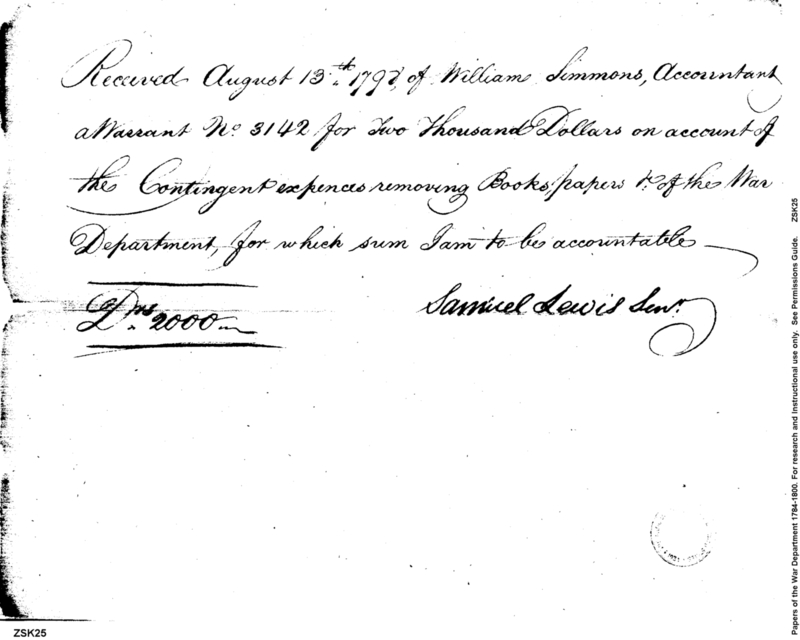 Received August 13.th 1798, of William Simmons, Accountant
a Warrant No. 3142 for Two Thousand Dollars on account of
the Contingent expences removing Books, papers &c. of the War
Department, for which sum I am to be accountable
Drs. 2000
Samuel Lewis Senr.
ZSK25
Papers of the War Department 1784-1800. For research and instructional use only. See Permissions Guide. ZSK25